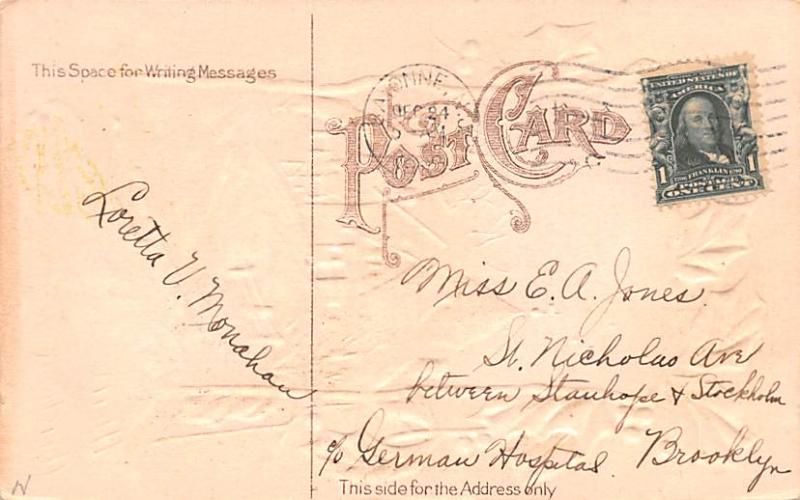 This Space for Writing Messages
POST CARD
DEC 24
UNITED STATES OF
AMERICA
1 1
FRANKLIN
POSTAGE
ONE CENT
Loretta V. Monahan
Miss E. A. Jones.
St. Nicholas Ave
between Stanhope & Stockholm
c/o German Hospital. Brooklyn
This side for the Address only
N